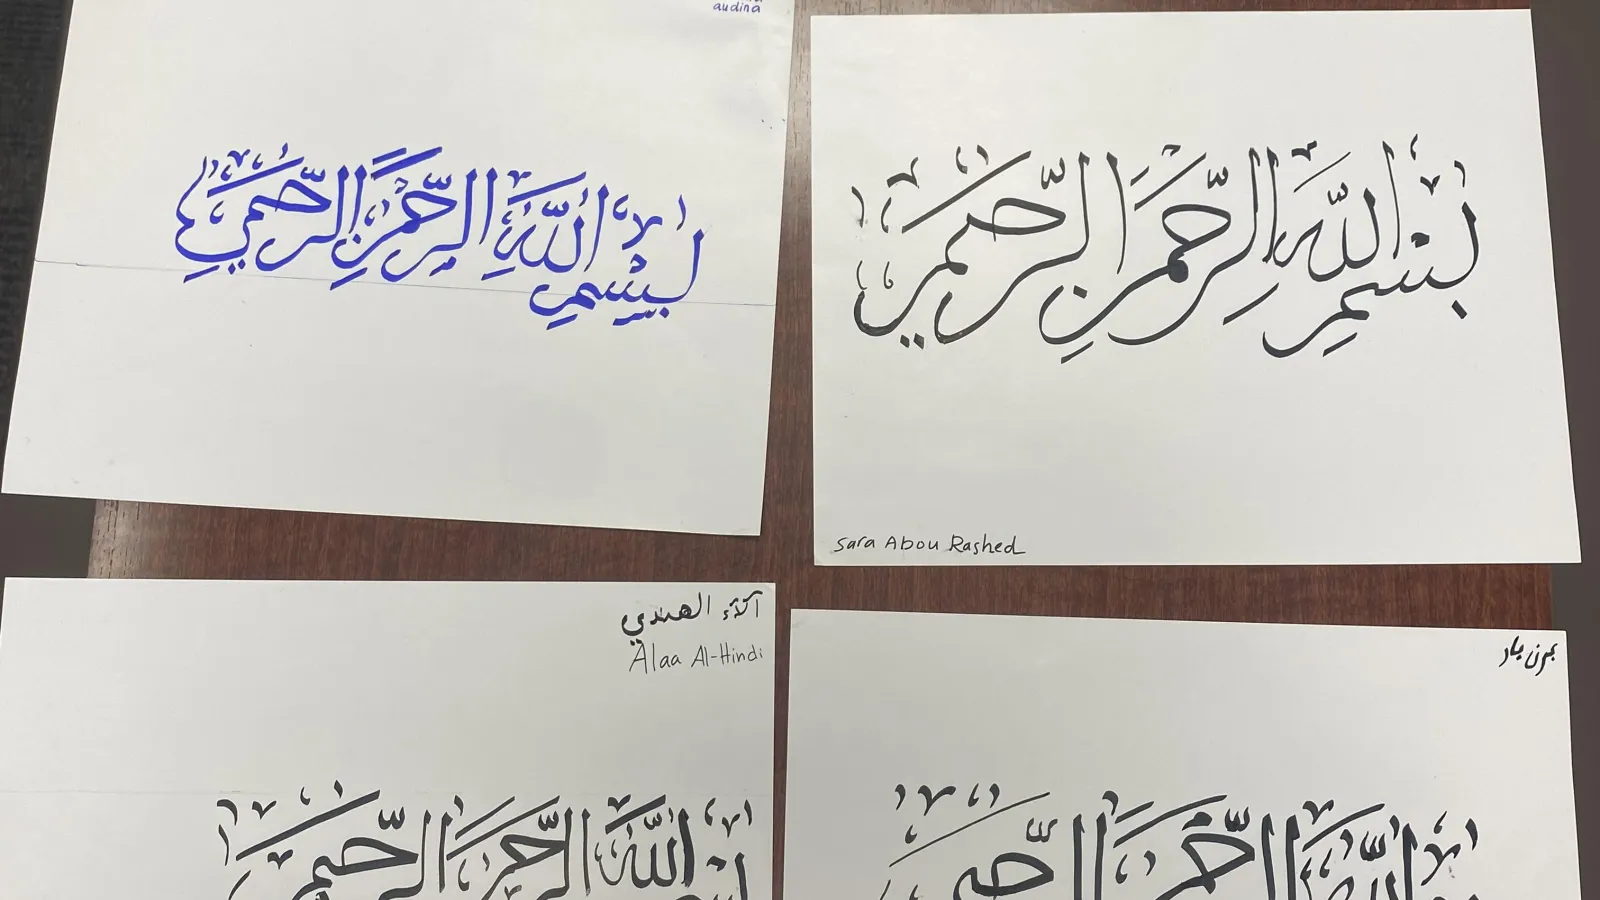 audina
بِسْمِ اللَّهِ الرَّحْمَنِ الرَّحِيمِ
بِسْمِ اللَّهِ الرَّحْمَنِ الرَّحِيمِ
Sara Abou Rashed
آلاء الهندي
Alaa Al-Hindi
بسم اللَّه الرَّحمَن الرَّحيم
اللَّه الرَّحمَن الرَّحيم